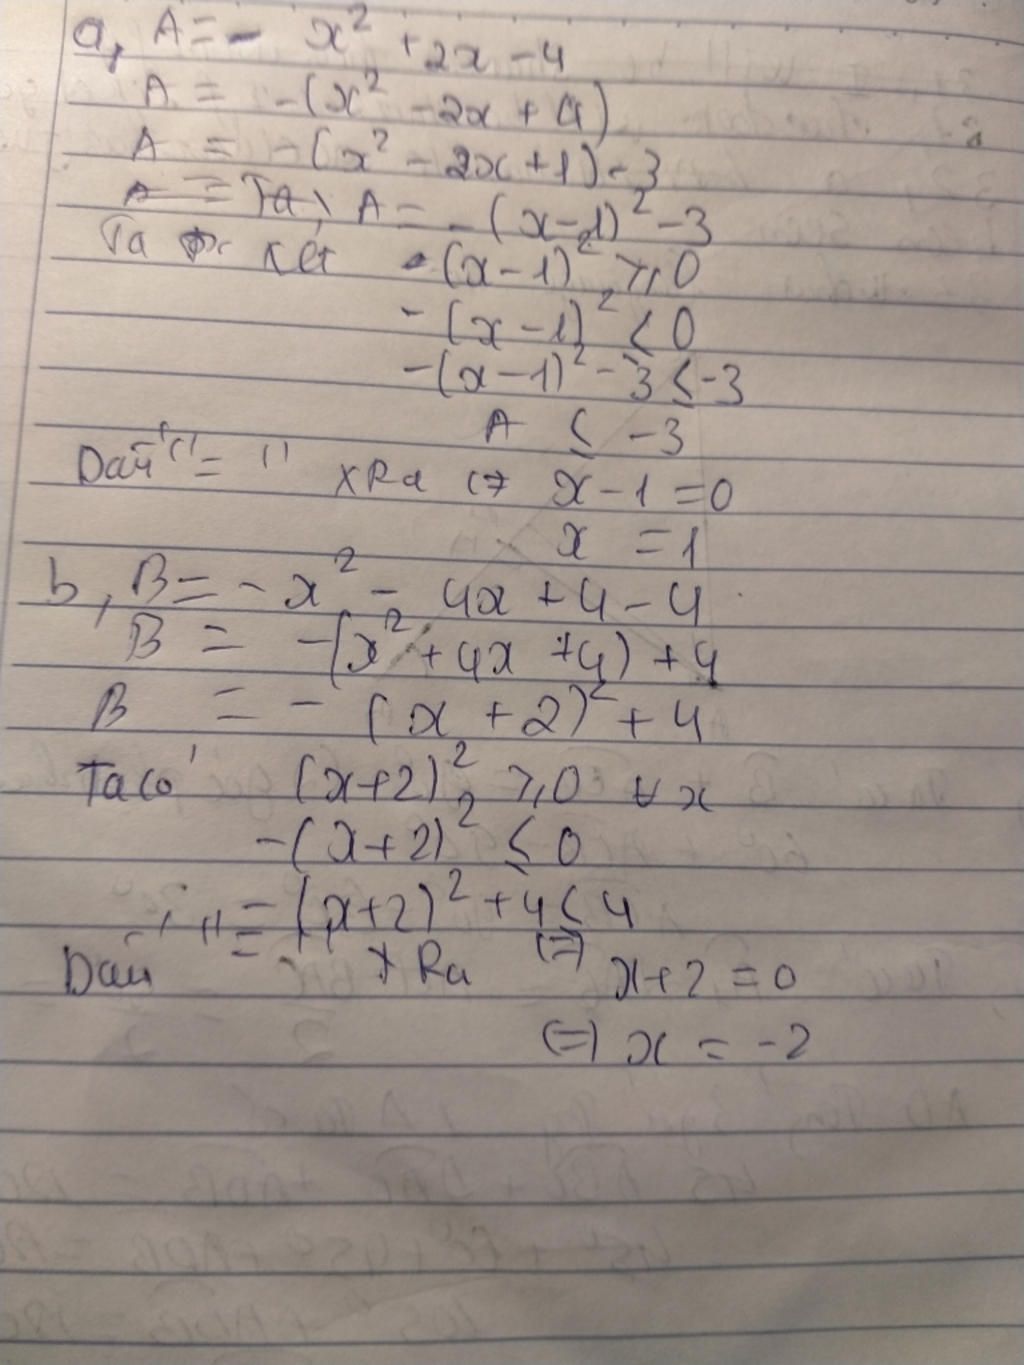 a, A = - x² + 2x - 4
A = -(x² - 2x + 4)
A = -(x² - 2x + 1) - 3
A = Ta, A = -(x-1)² - 3
Ta xét (x-1)² ≥ 0
-(x-1)² ≤ 0
-(x-1)² - 3 ≤ -3
A ≤ -3
Dấu "=" xRa <=> x-1 = 0
x = 1
b, B = -x² - 4x + 4 - 4
B = -(x² + 4x + 4) + 4
B = -(x+2)² + 4
Ta có (x+2)² ≥ 0 ∀x
-(x+2)² ≤ 0
-(x+2)² + 4 ≤ 4
Dấu "=" xRa <=> x+2 = 0
<=> x = -2